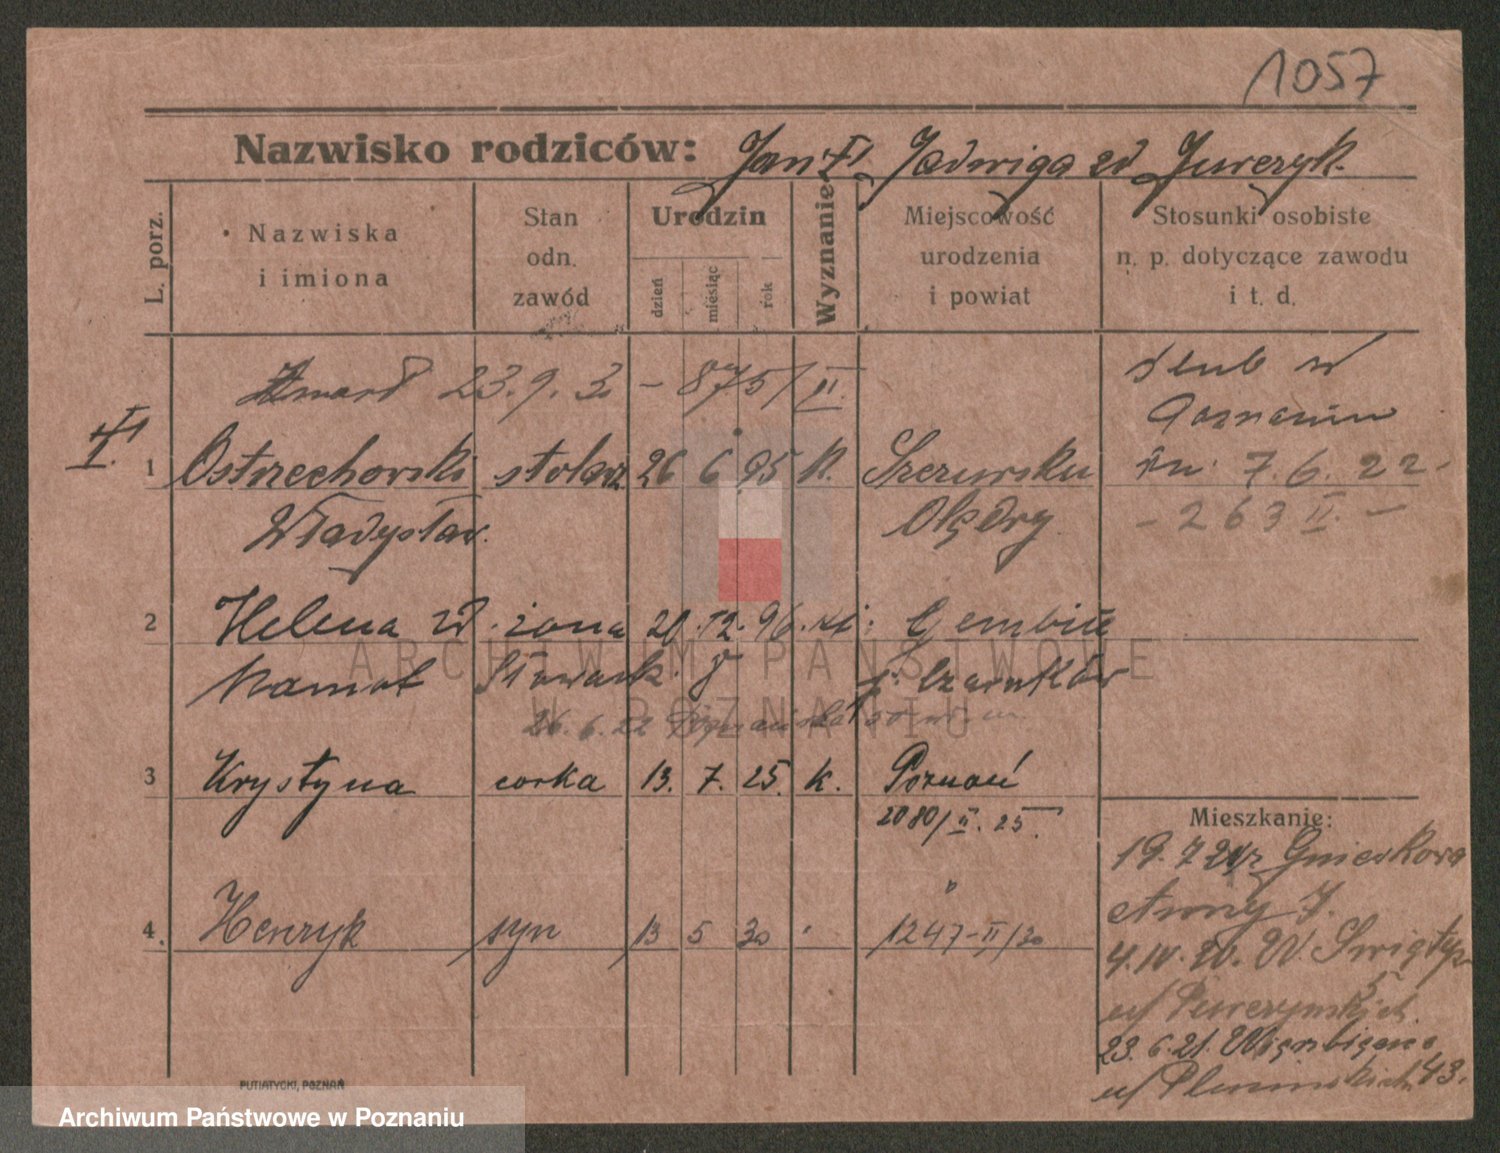 1057
Nazwisko rodziców: Jan Jadwiga zd Jurczyk.
L. porz.
Nazwiska i imiona
Stan odn. zawód
Urodzin
dzień miesiąc rok
Wyznanie
Miejscowość urodzenia i powiat
Stosunki osobiste n. p. dotyczące zawodu i t. d.
Zmarł 23.9.30 - 875/II.
ślub w
Poznaniu
1 Ostrzechowski stolarz 26 6 95 k. Szczursku
dn. 7.6.22-
Władysław. Olędry
- 263 II. -
2 Helena zd. żona 20.12.96. Gembice
Kamot Czarnków
26.6.22
3 Krystyna corka 13. 7. 25. k. Poznań
2080/II. 25.
Mieszkanie:
19.7
"
4. Henryk syn 13 5 30 " 1247-II/30
7.
4.IV.20. W.
5
u/
23.6.21.
u/ 43.
PUTIATYCKI, POZNAŃ
ARCHIWUM PAŃSTWOWE
W POZNANIU
Archiwum Państwowe w Poznaniu